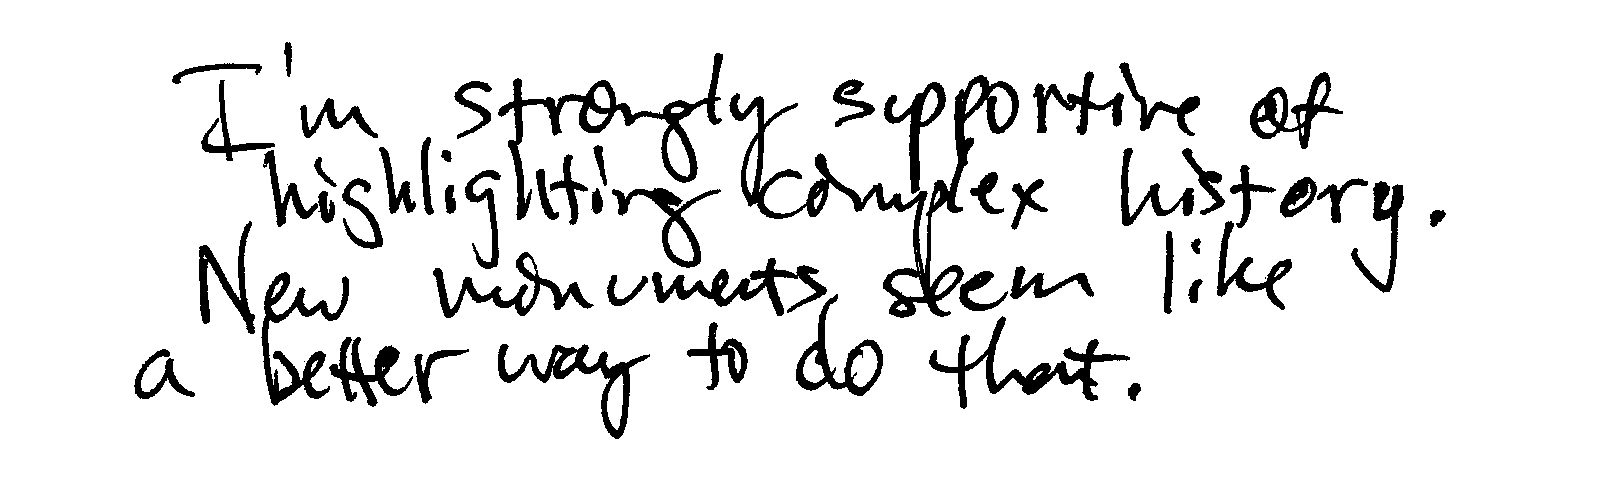 I'm strongly supportive of
highlighting complex history.
New monuments seem like
a better way to do that.